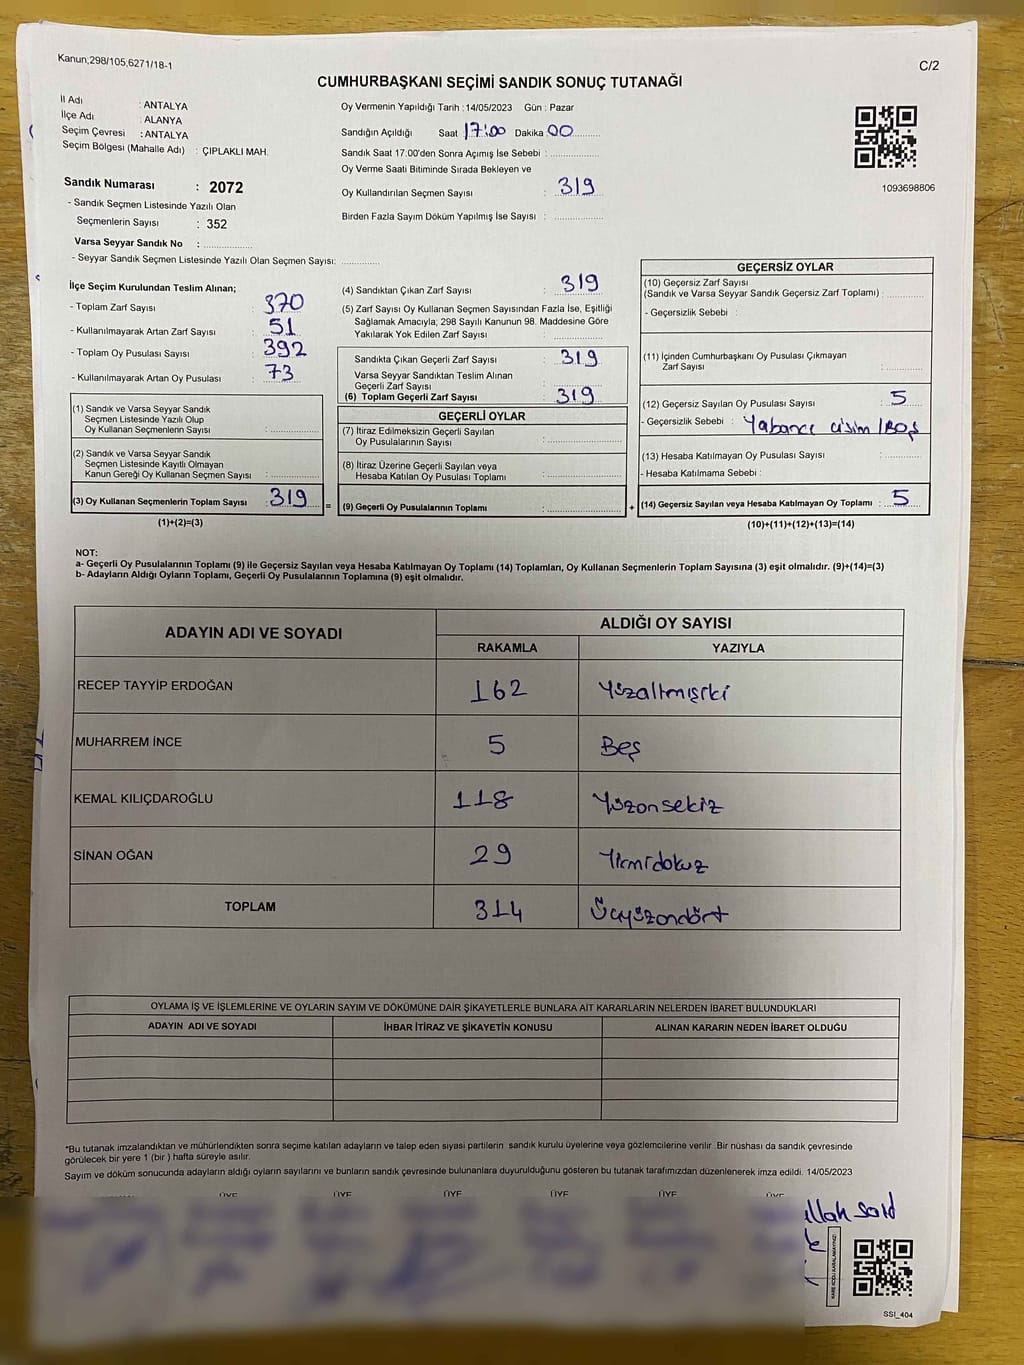 Kanun,298/105,6271/18-1
C/2
CUMHURBAŞKANI SEÇİMİ SANDIK SONUÇ TUTANAĞI
İl Adı : ANTALYA
İlçe Adı : ALANYA
Seçim Çevresi : ANTALYA
Seçim Bölgesi (Mahalle Adı) : ÇIPLAKLI MAH.
Sandık Numarası : 2072
- Sandık Seçmen Listesinde Yazılı Olan
Seçmenlerin Sayısı : 352
Varsa Seyyar Sandık No :
- Seyyar Sandık Seçmen Listesinde Yazılı Olan Seçmen Sayısı:
Oy Vermenin Yapıldığı Tarih : 14/05/2023 Gün : Pazar
Sandığın Açıldığı Saat 17:00 Dakika 00
Sandık Saat 17:00'den Sonra Açımış İse Sebebi :
Oy Verme Saati Bitiminde Sırada Bekleyen ve
Oy Kullandırılan Seçmen Sayısı : 319
Birden Fazla Sayım Döküm Yapılmış İse Sayısı :
1093698806
İlçe Seçim Kurulundan Teslim Alınan;
- Toplam Zarf Sayısı : 370
- Kullanılmayarak Artan Zarf Sayısı : 51
- Toplam Oy Pusulası Sayısı : 392
- Kullanılmayarak Artan Oy Pusulası : 73
(1) Sandık ve Varsa Seyyar Sandık
Seçmen Listesinde Yazılı Olup
Oy Kullanan Seçmenlerin Sayısı :
(2) Sandık ve Varsa Seyyar Sandık
Seçmen Listesinde Kayıtlı Olmayan
Kanun Gereği Oy Kullanan Seçmen Sayısı :
(3) Oy Kullanan Seçmenlerin Toplam Sayısı : 319 =
(1)+(2)=(3)
(4) Sandıktan Çıkan Zarf Sayısı : 319
(5) Zarf Sayısı Oy Kullanan Seçmen Sayısından Fazla İse, Eşitliği
Sağlamak Amacıyla, 298 Sayılı Kanunun 98. Maddesine Göre
Yakılarak Yok Edilen Zarf Sayısı :
Sandıkta Çıkan Geçerli Zarf Sayısı : 319
Varsa Seyyar Sandıktan Teslim Alınan
Geçerli Zarf Sayısı :
(6) Toplam Geçerli Zarf Sayısı : 319
GEÇERLİ OYLAR
(7) İtiraz Edilmeksizin Geçerli Sayılan
Oy Pusulalarının Sayısı :
(8) İtiraz Üzerine Geçerli Sayılan veya
Hesaba Katılan Oy Pusulası Toplamı :
(9) Geçerli Oy Pusulalarının Toplamı : +
GEÇERSİZ OYLAR
(10) Geçersiz Zarf Sayısı
(Sandık ve Varsa Seyyar Sandık Geçersiz Zarf Toplamı) :
- Geçersizlik Sebebi :
(11) İçinden Cumhurbaşkanı Oy Pusulası Çıkmayan
Zarf Sayısı :
(12) Geçersiz Sayılan Oy Pusulası Sayısı : 5
- Geçersizlik Sebebi : Yabancı cisim / Boş
(13) Hesaba Katılmayan Oy Pusulası Sayısı :
- Hesaba Katılmama Sebebi :
(14) Geçersiz Sayılan veya Hesaba Katılmayan Oy Toplamı : 5
(10)+(11)+(12)+(13)=(14)
NOT:
a- Geçerli Oy Pusulalarının Toplamı (9) ile Geçersiz Sayılan veya Hesaba Katılmayan Oy Toplamı (14) Toplamları, Oy Kullanan Seçmenlerin Toplam Sayısına (3) eşit olmalıdır. (9)+(14)=(3)
b- Adayların Aldığı Oyların Toplamı, Geçerli Oy Pusulalarının Toplamına (9) eşit olmalıdır.
ADAYIN ADI VE SOYADI
ALDIĞI OY SAYISI
RAKAMLA YAZIYLA
RECEP TAYYİP ERDOĞAN 162 Yüzaltmışiki
MUHARREM İNCE 5 Beş
KEMAL KILIÇDAROĞLU 118 Yüzonsekiz
SİNAN OĞAN 29 Yirmidokuz
TOPLAM 314 Üçyüzondört
OYLAMA İŞ VE İŞLEMLERİNE VE OYLARIN SAYIM VE DÖKÜMÜNE DAİR ŞİKAYETLERLE BUNLARA AİT KARARLARIN NELERDEN İBARET BULUNDUKLARI
ADAYIN ADI VE SOYADI İHBAR İTİRAZ VE ŞİKAYETİN KONUSU ALINAN KARARIN NEDEN İBARET OLDUĞU
*Bu tutanak imzalandıktan ve mühürlendikten sonra seçime katılan adayların ve talep eden siyasi partilerin sandık kurulu üyelerine veya gözlemcilerine verilir. Bir nüshası da sandık çevresinde
görülecek bir yere 1 (bir) hafta süreyle asılır.
Sayım ve döküm sonucunda adayların aldığı oyların sayılarını ve bunların sandık çevresinde bulunanlara duyurulduğunu gösteren bu tutanak tarafımızdan düzenlenerek imza edildi. 14/05/2023
ÜYE ÜYE ÜYE ÜYE ÜYE ÜYE
ullah said
KARE KODU KARALAMAYINIZ!
SSI_404